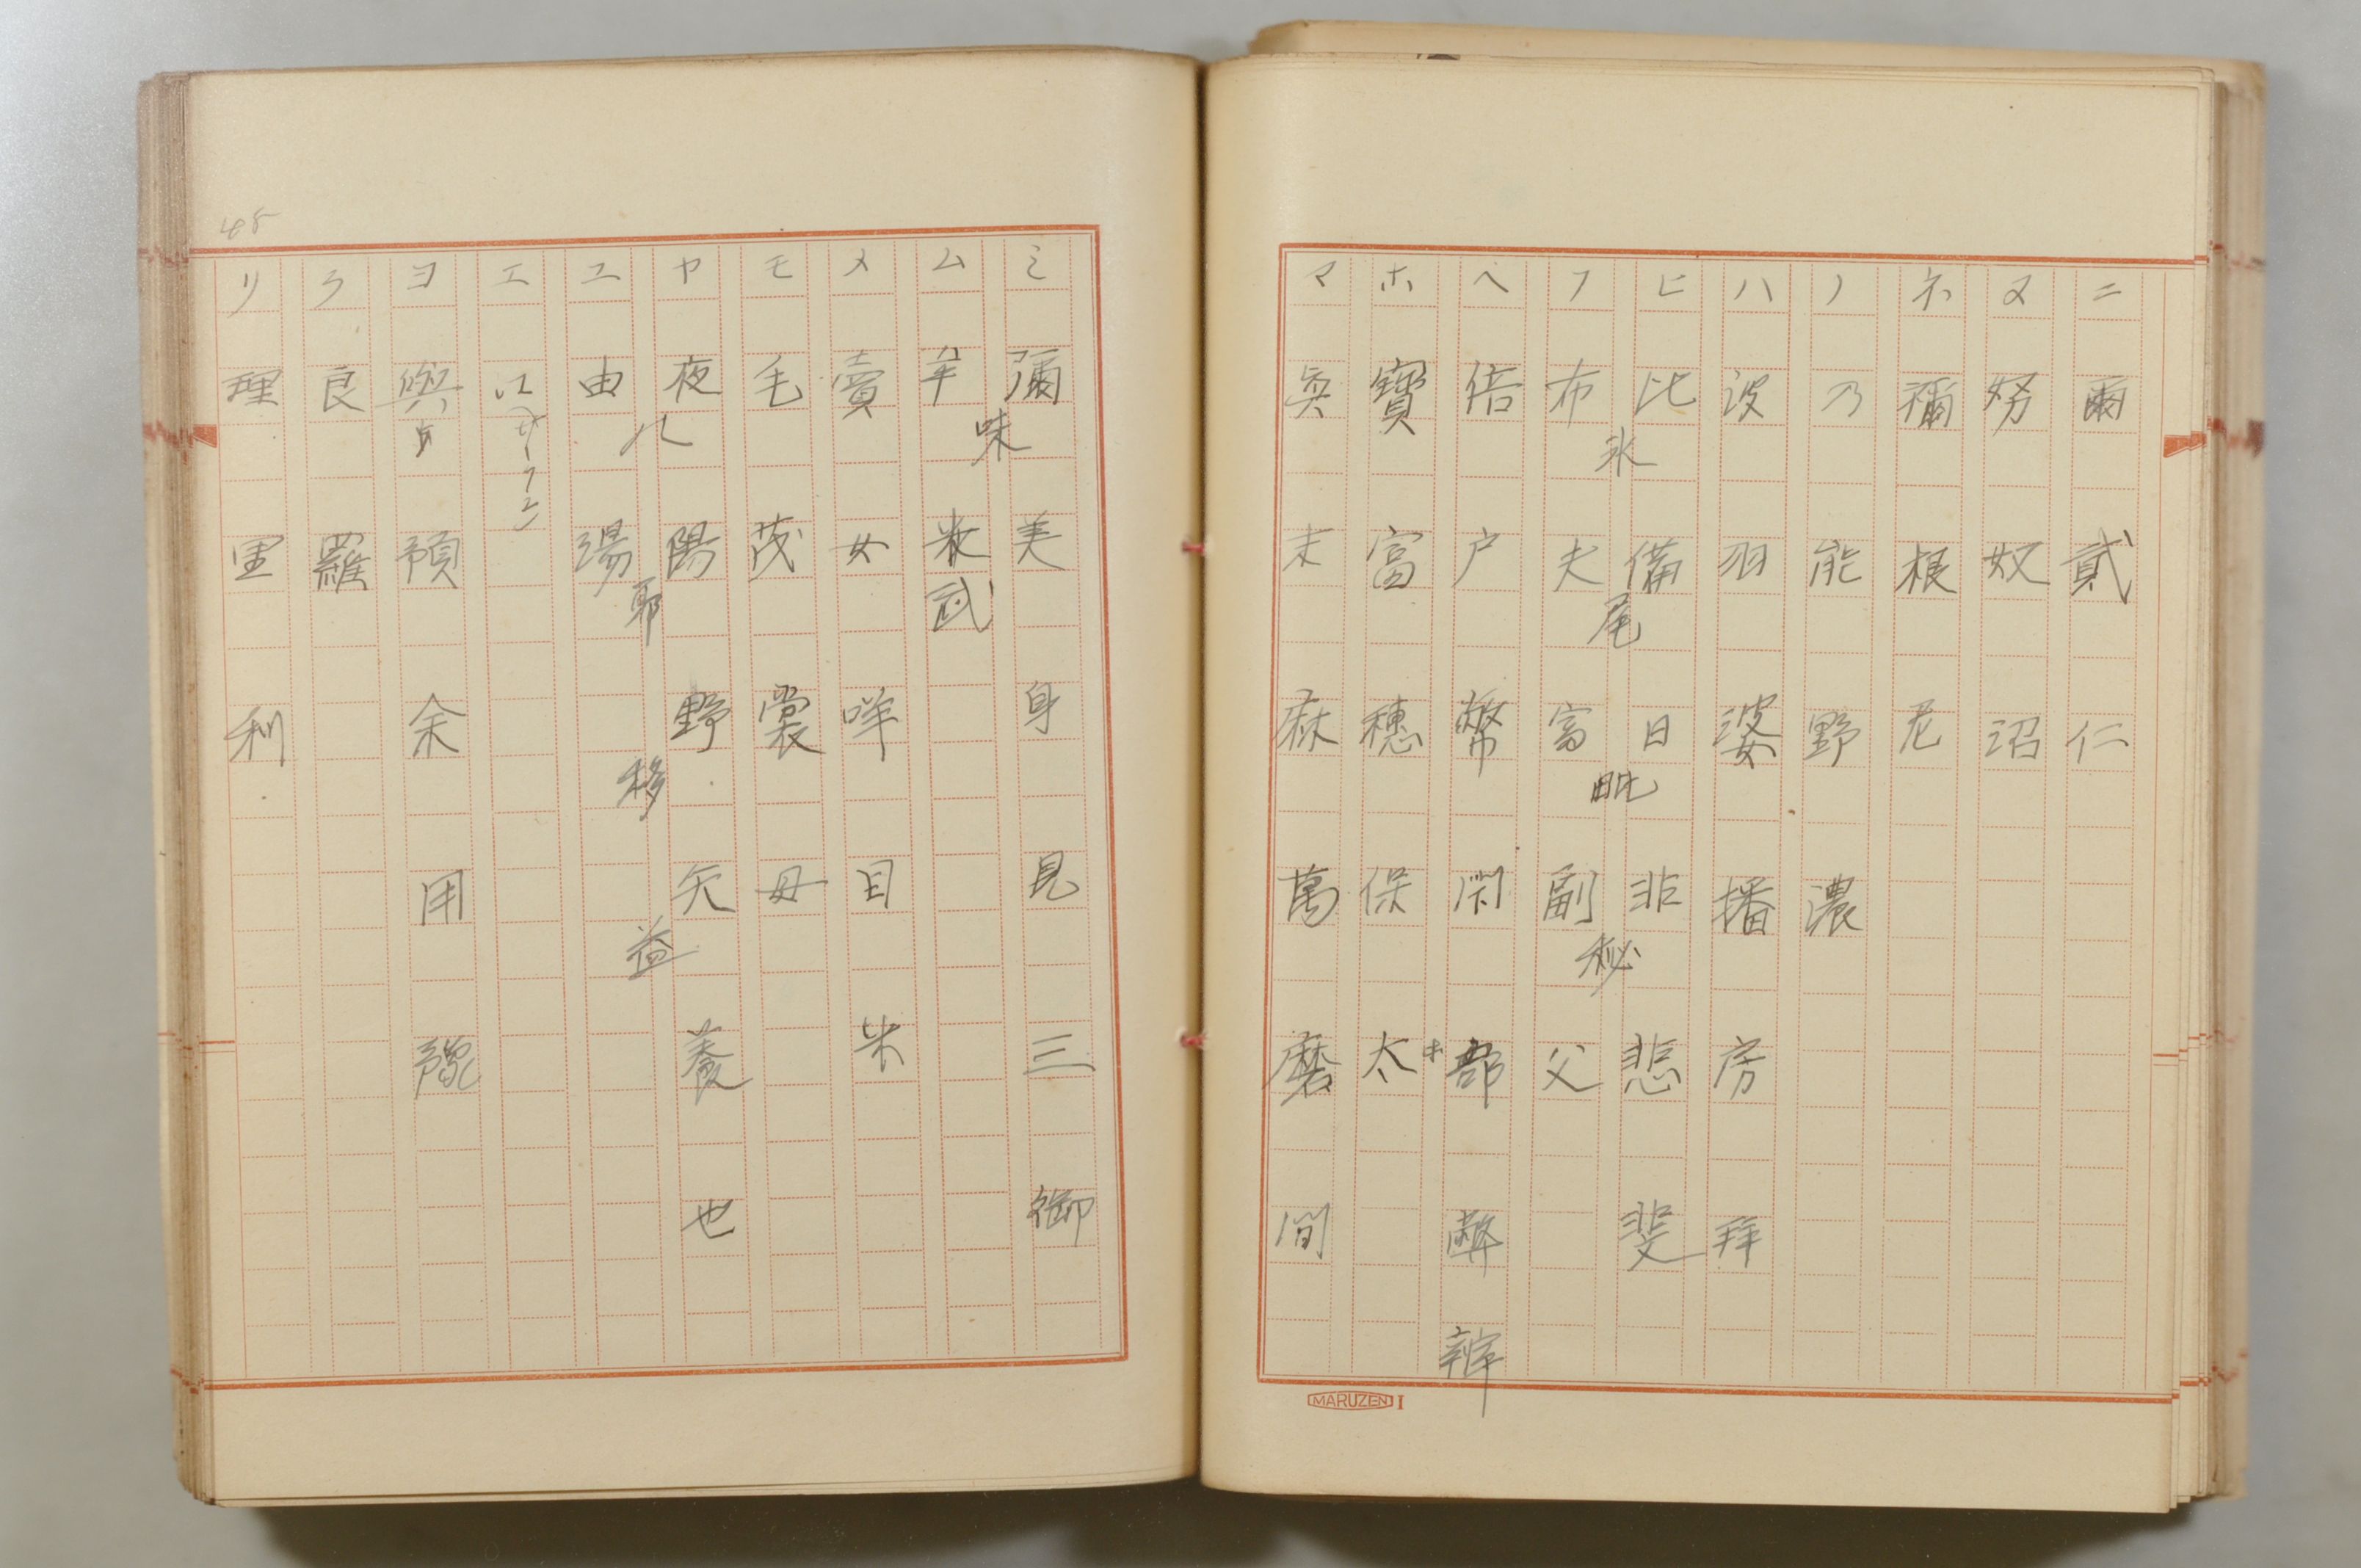 ニ 爾 貳 仁
ヌ 努 奴 沼
ネ 禰 根 尼
ノ 乃 能 野 濃
ハ 波 羽 婆 播 房 拜
ヒ 比 備 日 非 悲 斐
氷 尾 毗 秘
フ 布 夫 富 副 父
ヘ 倍 戸 幣 閇 部 弊 辨
ホ 寶 富 穗 保 太ホ
マ 末 麻 萬 磨 間
MARUZEN I
48
ミ 彌 美 身 見 三 御
味
ム 牟 武
メ 賣 女 咩 目 米
モ 毛 茂 裳 母
ヤ 夜 陽 野 矢 養 也
八 耶 移 益
ユ 由 湯
エ 江
ヨ 與 預 余 用 豫
ラ 良 羅
リ 理 里 利